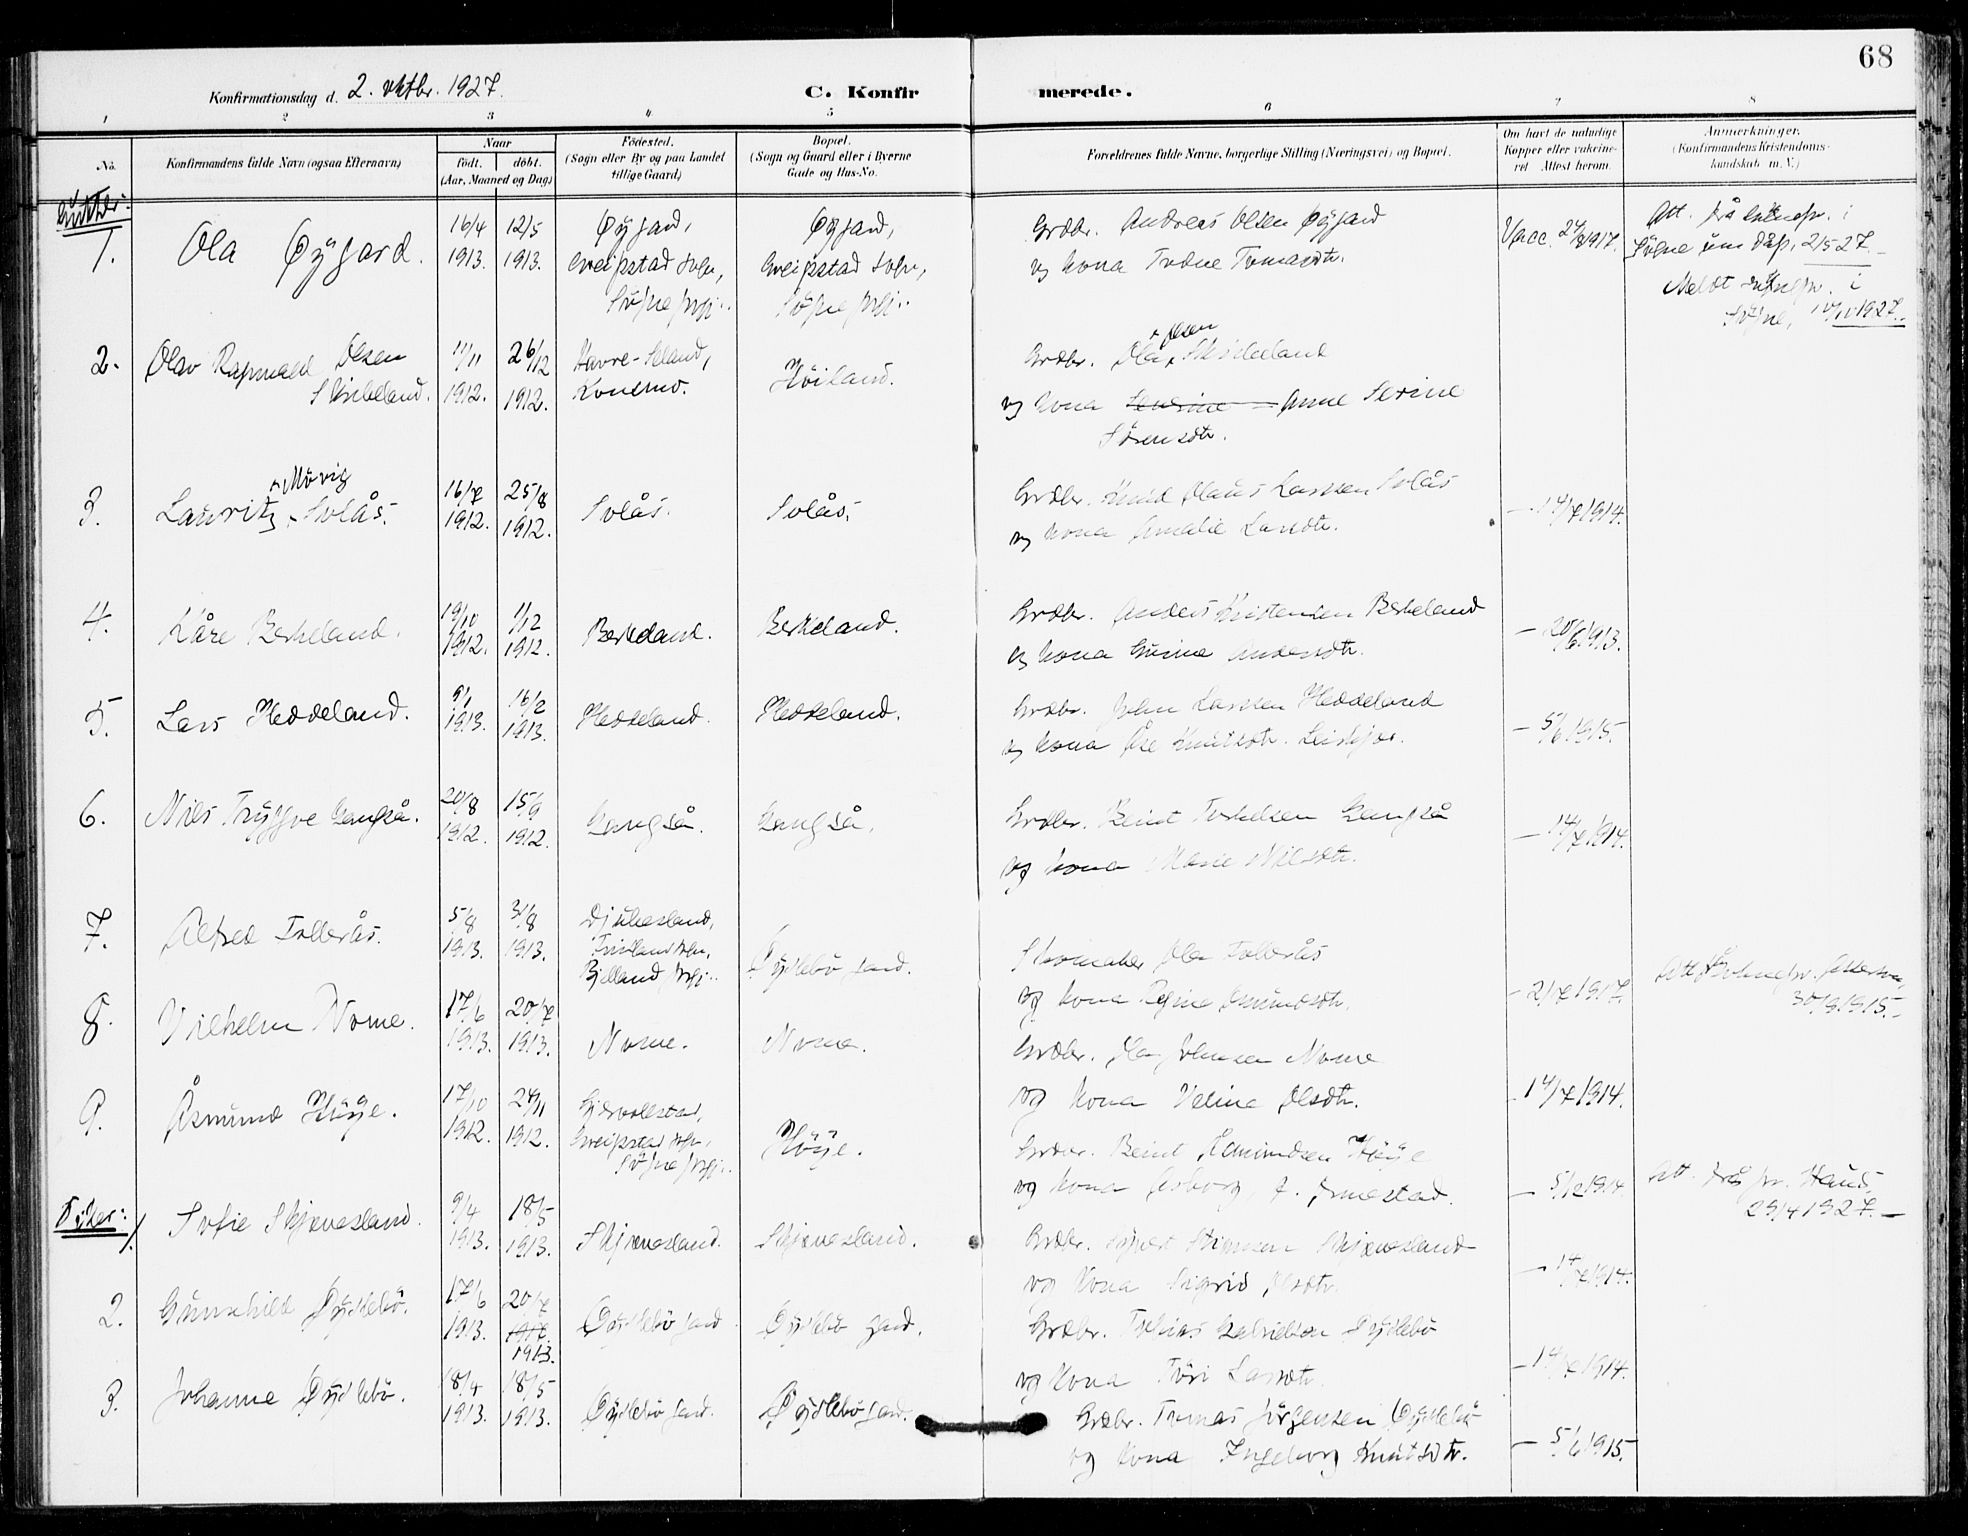 68
Konfirmationsdag d. 2. oktbr. 1927.
C. Konfirmerede.
1 2 3 4 5 6 7 8
No.
Konfirmandens fulde Navn (ogsaa Efternavn)
Naar
født. døbt.
(Aar, Maaned og Dag)
Fødested.
(Sogn eller By og paa Landet
tillige Gaard)
Bopæl.
(Sogn og Gaard eller i Byerne
Gade og Hus-No.
Forældrenes fulde Navne, borgerlige Stilling (Næringsvei) og Bopæl.
Om havt de naturlige
Kopper eller vakcine-
ret Attest herom.
Anmerkninger.
(Konfirmandens Kristendoms-
kundskab m. V.)
Gutter:
1. Ola Øygard. 16/4 1913. 12/5 1913. Øygard, Greipstad sogn, Søgne prgj. Øygard, Greipstad sogn, Søgne prgj.
Grdbr. Andreas Olsen Øygard
og kona Trdne Tomasdtr.
Vacc. 1917.
Att. frå soknepr. i
Søgne um dåp, 2/5 27.
Meldt soknepr. i
Søgne, 1927.
2. Olav Ragnvald Olsen Skibeland. 11/11 1912. 26/12 1912. Havre-Seland, Konsmo. Høiland.
Grdbr. Ola Olsen Skibeland
og kona Anne Serine
Sørensdtr.
3. Lauritz Møvig Solås. 16/7 1912. 25/8 1912. Solås. Solås.
Grdbr. Knud Olaus Larssen Solås
og kona Amalie Larsdtr.
— 14/7 1914.
4. Kåre Berkeland. 19/10 1912. 1/12 1912. Berkeland. Berkeland.
Grdbr. Anders Kristensen Berkeland
og kona Gurine Andersdtr.
— 20/6 1913.
5. Lars Heddeland. 9/1 1913. 16/2 1913. Heddeland. Heddeland.
Grdbr. John Larssen Heddeland
og kona Åse Knutsdtr.
— 5/6 1915.
6. Nils Tryggve Langså. 20/8 1912. 15/9 1912. Langså. Langså.
Grdbr. Beint Torkelsen Langså
og kona Marie Nilsdtr.
— 14/7 1914.
7. Alfred Follerås. 5/8 1913. 31/8 1913. Djukesland, Finsland sogn, Bjelland prgj. Øyslebø gard.
Skomaker Ola Follerås
og kona Regine Osmundsdtr.
— 2/7 1917.
30/9 1915.
8. Vilhelm Nome. 17/6 1913. 20/7 1913. Nome. Nome.
Grdbr. Ola Johnsen Nome
og kona Velina Olsdtr.
14/7 1914.
9. Åsmund Høye. 17/10 1912. 24/11 1912. Greipstad sogn, Søgne prgj. Høye.
Grdbr. Beint Åsmundsen Høye
og kona
— 5/12 1914.
Att. frå pr. Haus,
29/4 1927. —
Piker:
1. Sofie Skjævesland. 9/4 1913. 18/5 1913. Skjævesland. Skjævesland.
Grdbr. Skjævesland
og kona Sigrid Olsdtr.
— 14/7 1914.
2. Gunvhild Øyslebø. 17/6 1913. 20/7 1913. Øyslebø gard. Øyslebø gard.
Grdbr. Tobias Gabrielsen Øyslebø
og kona Tori Larsdtr.
— 14/7 1914.
3. Johanne Øyslebø. 18/4 1913. 18/5 1913. Øyslebø gard. Øyslebø gard.
Grdbr. Tomas Jørgensen Øyslebø
og kona Ingeborg Knutsdtr.
— 5/6 1915.